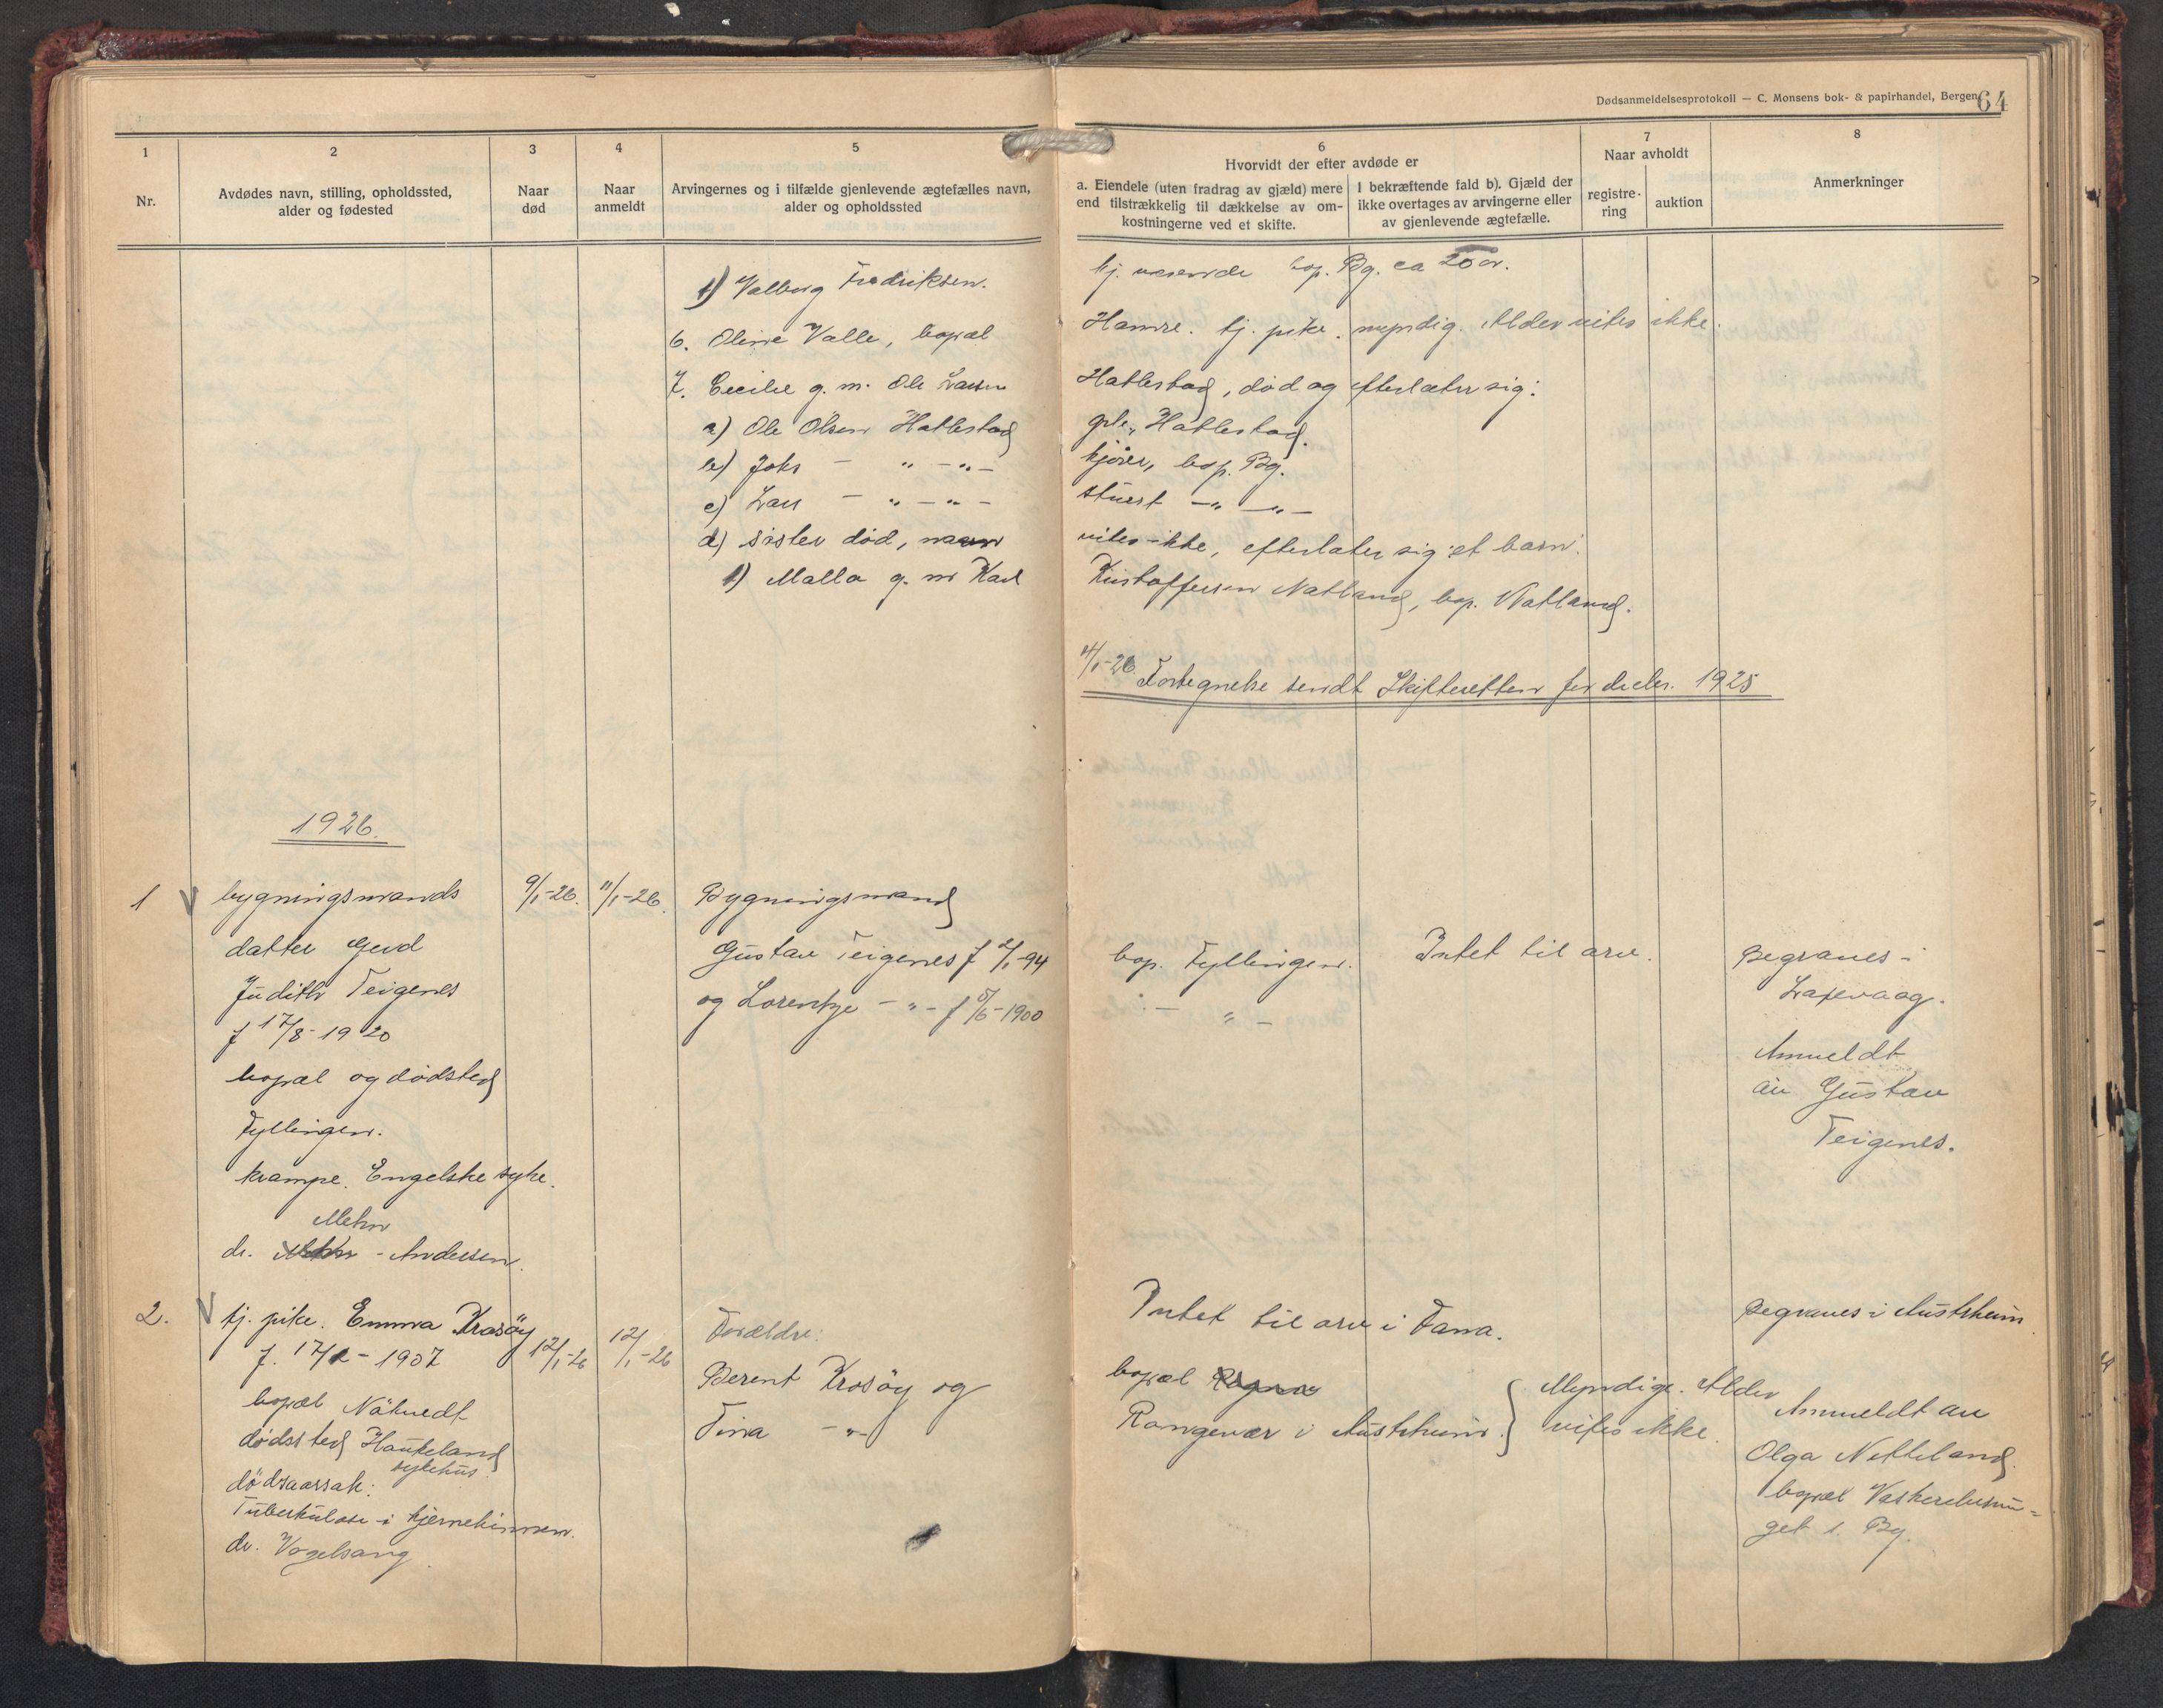 Dødsanmeldelsesprotokoll — C. Monsens bok- & papirhandel, Bergen
64
1
Nr.
2
Avdødes navn, stilling, opholdssted,
alder og fødested
3
Naar
død
4
Naar
anmeldt
5
Arvingernes og i tilfælde gjenlevende ægtefælles navn,
alder og opholdssted
6
Hvorvidt der efter avdøde er
a. Eiendele (uten fradrag av gjæld) mere
end tilstrækkelig til dækkelse av om-
kostningerne ved et skifte.
I bekræftende fald b). Gjæld der
ikke overtages av arvingerne eller
av gjenlevende ægtefælle.
7
Naar avholdt
registre-
ring
auktion
8
Anmerkninger
1) Valborg Fredriksen. tj. værende bop. Bg. ca 20 år.
6. Oline Valle, bopæl Hamre. tj. pike. myndig. Alder vites ikke.
7. Cecilie g. m. Ole Larsen Hatlestad, død og efterlater sig:
a) Ole Olsen Hatlestad grbr. Hatlestad.
b) Johs — " — " — kjører, bop. Bg.
c) Lars — " — " — stuert — " — " —
d) søster død, navn vites ikke, efterlater sig et barn:
1) Malla g. m Karl Kristoffersen Natland, bop. Natland.
11/1-26. Fortegnelse sendt Skifteretten for decbr. 1925
1926.
1 bygningsmands 9/1-26. 11/1-26. Bygningsmand
datter Gerd Gustav Teigenes f 2/1-94 bop. Fyllingen. Intet til arv. Begraves i
Judith Teigenes og Lorentze — " — f 5/6-1900 — " — Laxevaag.
f 17/8-1920 Anmeldt
bopæl og dødsted av Gustav
Fyllingen. Teigenes.
krampe. Engelske syke.
Mohn
dr. - Andersen.
2. tj. pike. Emma Krosöy 12/1-26 12/1-26 Forældre: Intet til arv i Fana. Begraves i Austrheim.
f. 17/2-1907
bopæl Nøtvedt Berent Krosöy og bopæl Myndige. Alder Anmeldt av
dødssted Haukeland Tina — " — Rongevær i Austrheim. } vites ikke. Olga Netteland
sykehus.
dödsaarsak: bopæl
Tuberkulose i hjernehinnen. get i. Bg.
dr. Vogelsang.